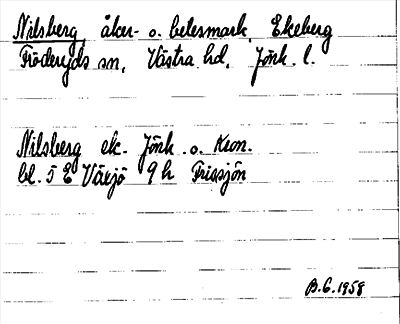 Nilsberg, åker- o. betesmark, Ekeberg
Fröderyds sn, Västra hd, Jönk. l.
Nilsberg ek. Jönk. o. Kron.
bl. 5 E Växjö 9 h Frissjön
B.G. 1958